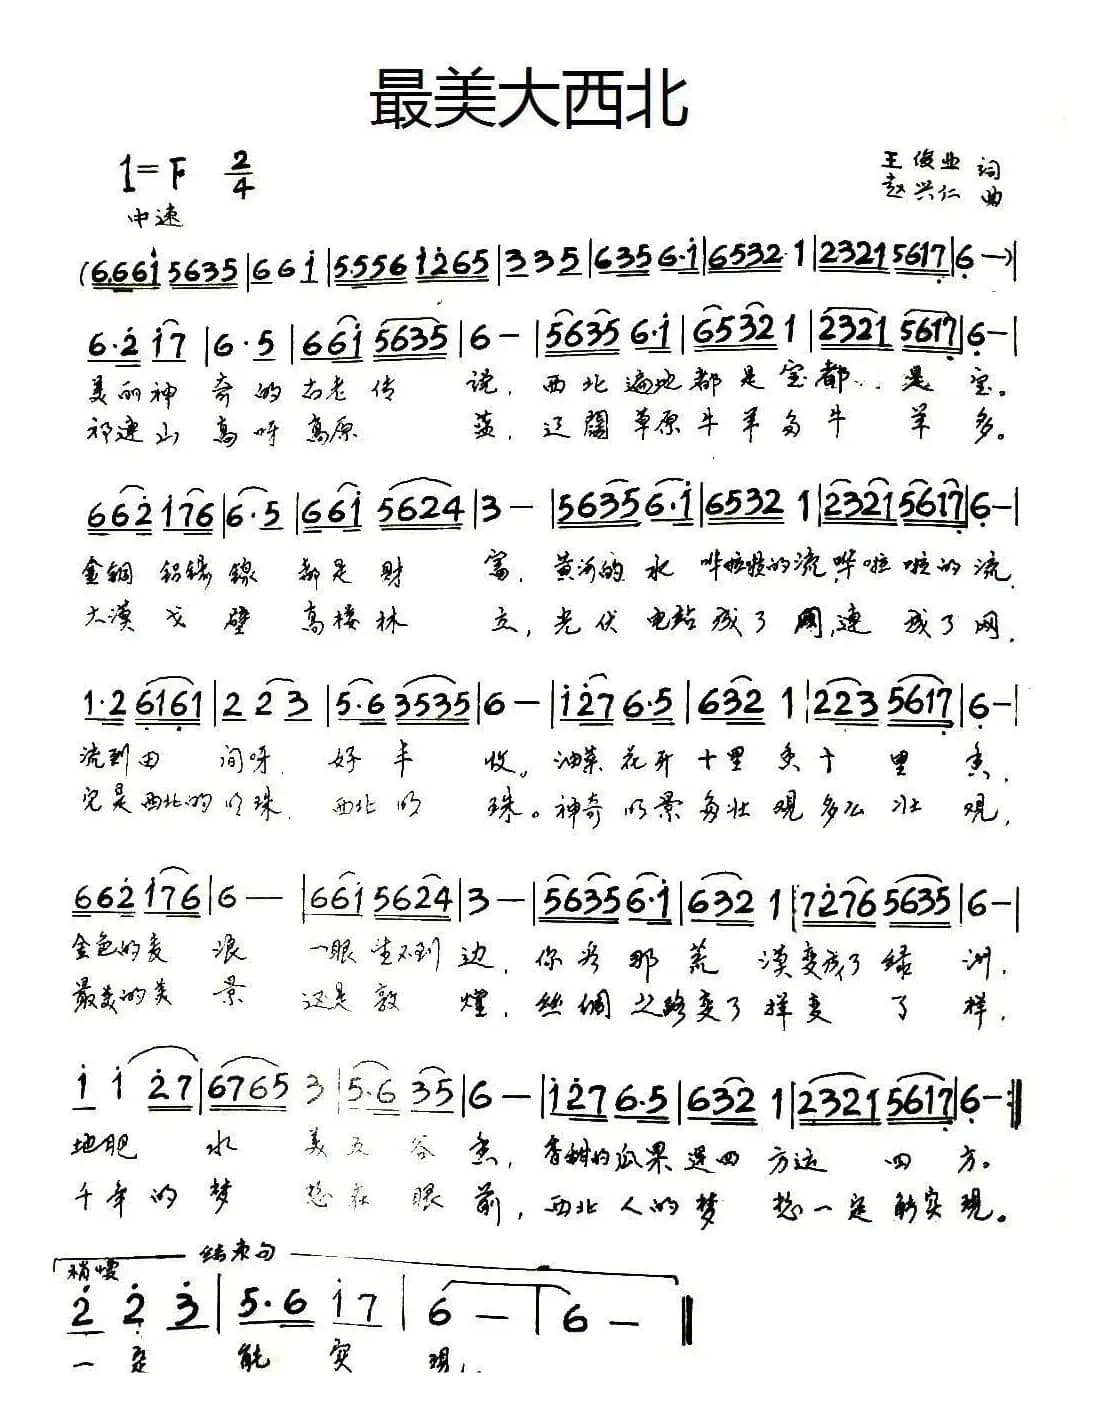 最美大西北
1=F 2/4
王俊业 词
赵兴仁 曲
中速
(6.661 5635|661|5.556 1265|335|6356.1|65321|23215617|6—)|
6.2 17|6.5|661 5635|6—|5635 6.1|65321|23215617|6—|
美丽神奇的古老传说，西北遍地都是宝都..是宝。
祁连山高呀高原蓝，辽阔草原牛羊多牛羊多。
662 176|6.5|661 5624|3—|56356.1|65321|23215617|6—|
金铜铝锡镍都是财富，黄河的水哗啦啦的流，哗啦啦的流，
大漠戈壁高楼林立，光伏电站成了网，连成了网，
1.2 6161|223|5.6 3535|6—|127 6.5|6321|2235617|6—|
流到田间呀，好丰收。油菜花开十里香十里香，
它是西北的明珠，西北的珠。神奇的景多壮观多么壮观，
662 176|6—|661 5624|3—|56356.1|6321|7276 5635|6—|
金色的麦浪一眼望不到边，你看那荒漠变成了绿洲，
最美的美景这是敦煌，丝绸之路变了样变了样，
1 1 27|6765 3|5.6 35|6—|127 6.5|6321|23215617|6—:|
地肥水美五谷香，香甜的瓜果运四方运四方。
千年的梦想在眼前，西北人的梦想一定能实现。
结束句
稍慢
2 2 3|5.6 17|6—|6—||
一定能实现.